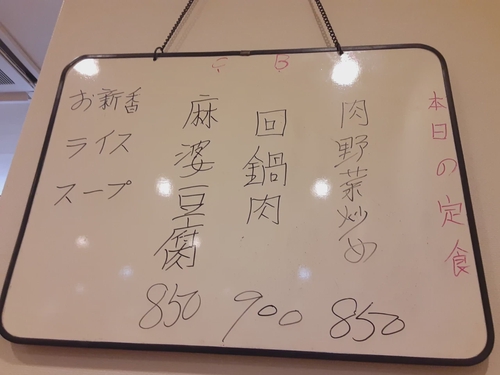 本日の定食
肉野菜炒め
850
B
回鍋肉
900
C
麻婆豆腐
850
お新香
ライス
スープ